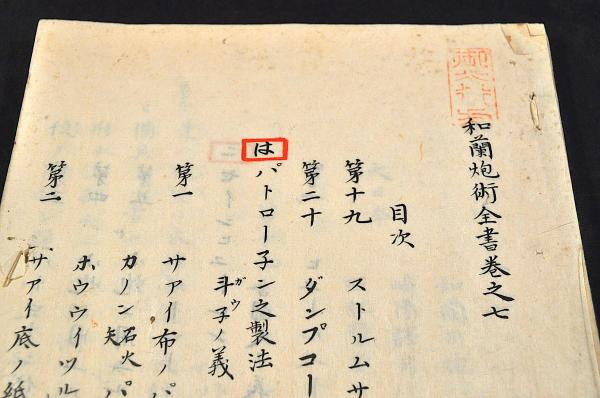 和蘭炮術全書巻之七
目次
第十九 ストルムサ
第二十 ダンプコー
は パトロー子ン之製法
斗子ノ義
ガウ
第一 サアイ布ノパ
カノン石火矢パ
ホウウイツル
第二 サアイ底ノ紙